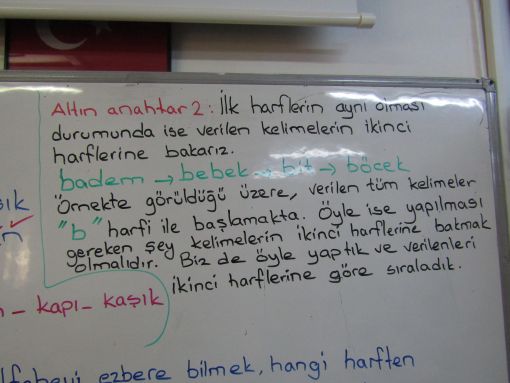 Altın anahtar 2: İlk harflerin aynı olması
durumunda ise verilen kelimelerin ikinci
harflerine bakarız.
badem → bebek → bit → böcek
Örnekte görüldüğü üzere, verilen tüm kelimeler
"b" harfi ile başlamakta. Öyle ise yapılması
gereken şey kelimelerin ikinci harflerine bakmak
olmalıdır. Biz de öyle yaptık ve verilenleri
ikinci harflerine göre sıraladık.
- kapı - kaşık
ezbere bilmek, hangi harften